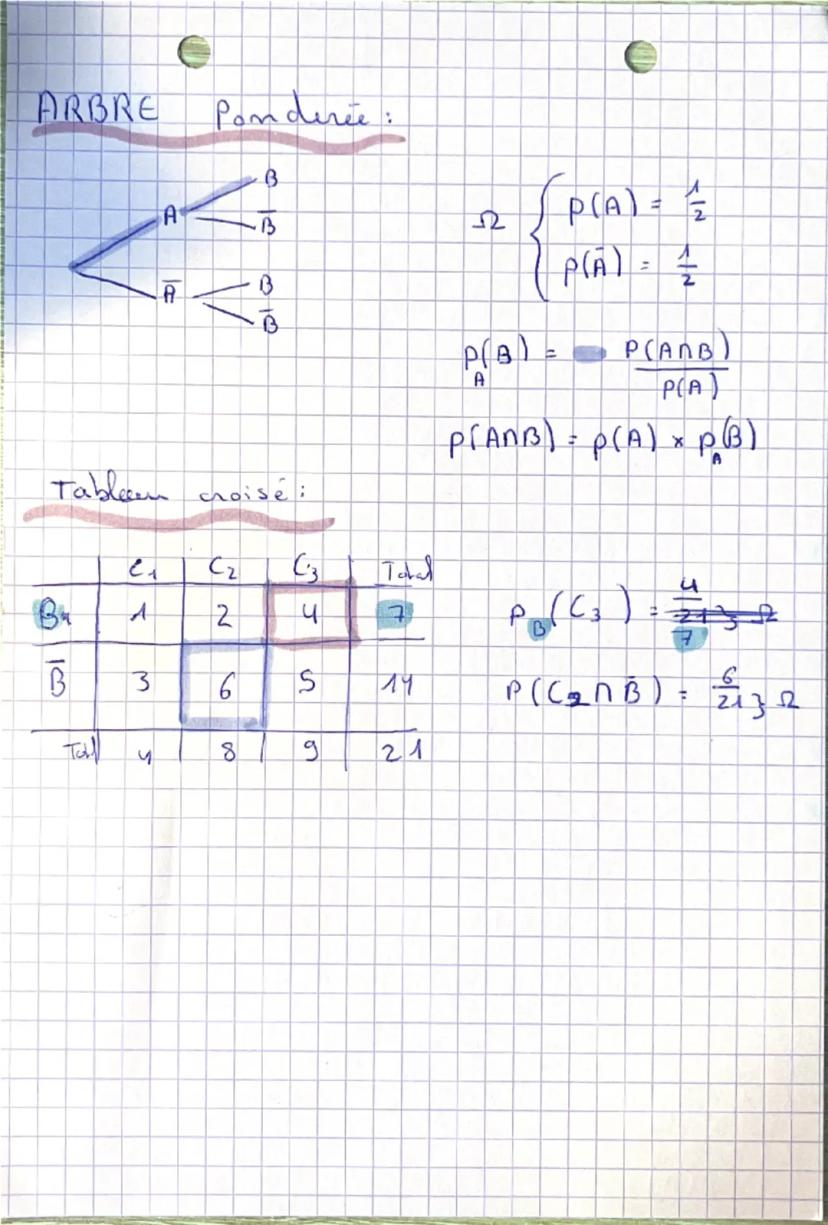 ARBRE Ponderée :
B
A
B̅
A̅
B
B̅
Ω { p(A) = 1/2
p(A̅) = 1/2
P_A(B) = P(A∩B)/P(A)
p(A∩B) = p(A) × p_A(B)
Tableau croisé :
C1 C2 C3 Total
B 1 2 4 7
B̅ 3 6 5 14
Total 4 8 9 21
P_B(C3) = 4/7
P(C2 ∩ B̅) = 6/21 } Ω